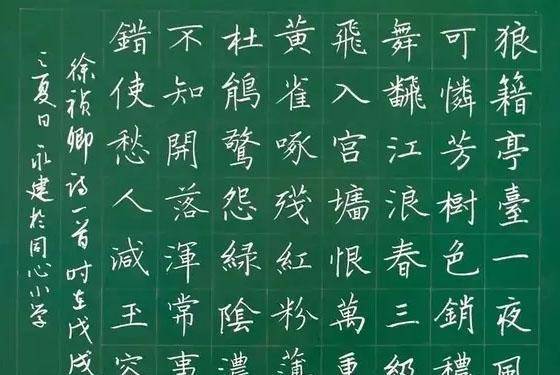 狼籍亭臺一夜風
可憐芳樹色銷穠
舞翻江浪春三級
飛入宮墻恨萬重
黃雀啄殘紅粉薄
杜鵑驚怨綠陰濃
不知開落渾常事
錯使愁人減玉容
徐禎卿詩一首时在戊戌
之夏日永建於同心小学